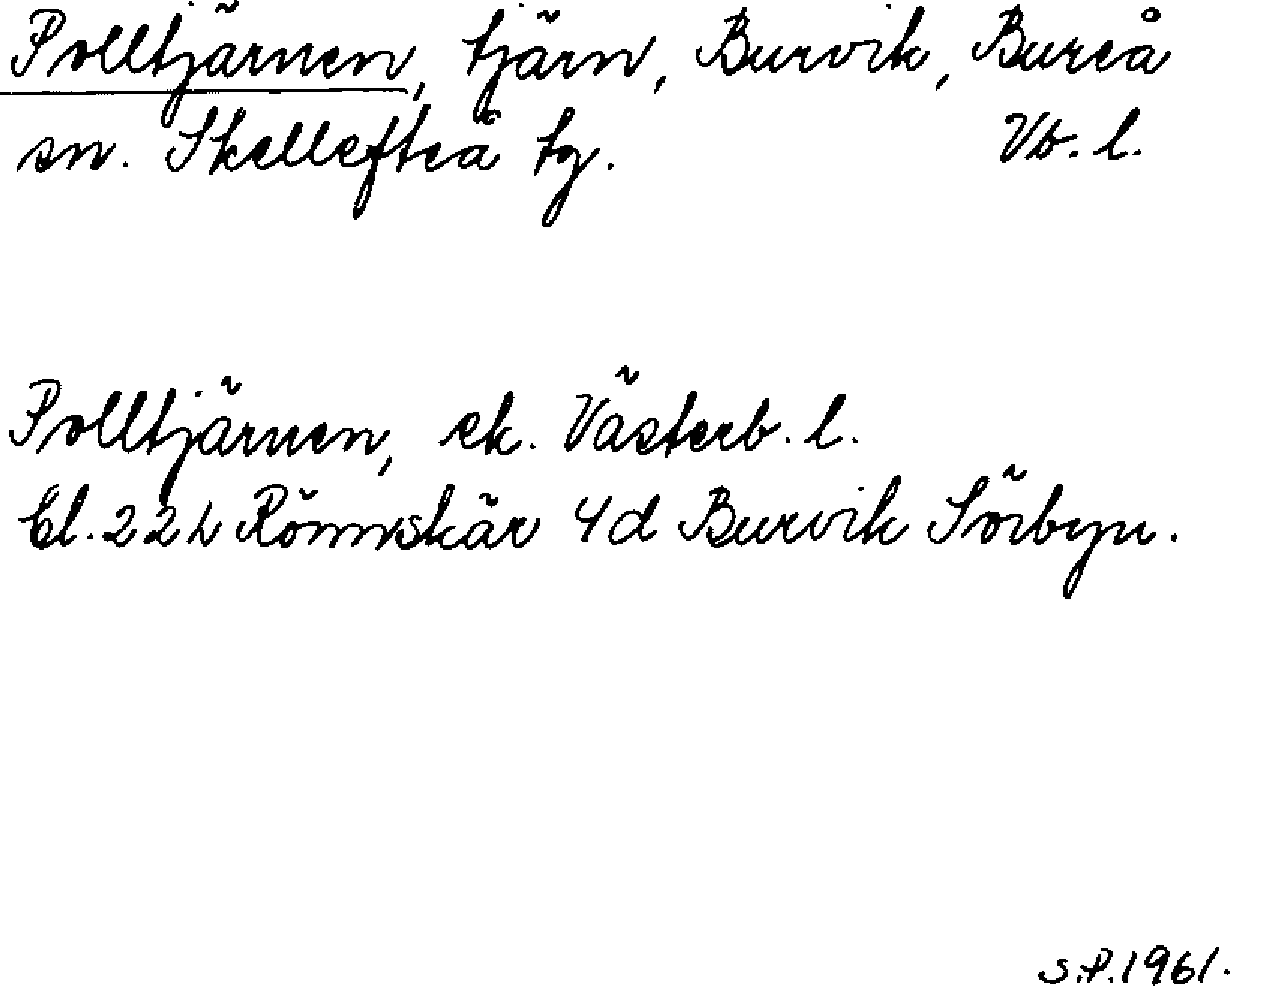 Polltjärnen, tjärn, Burvik, Bureå
sn. Skellefteå tg. Vb. l.
Polltjärnen, ek. Västerb. l.
Bl. 22 L Rönnskär 4d Burvik Sörbyn.
S.P. 1961.